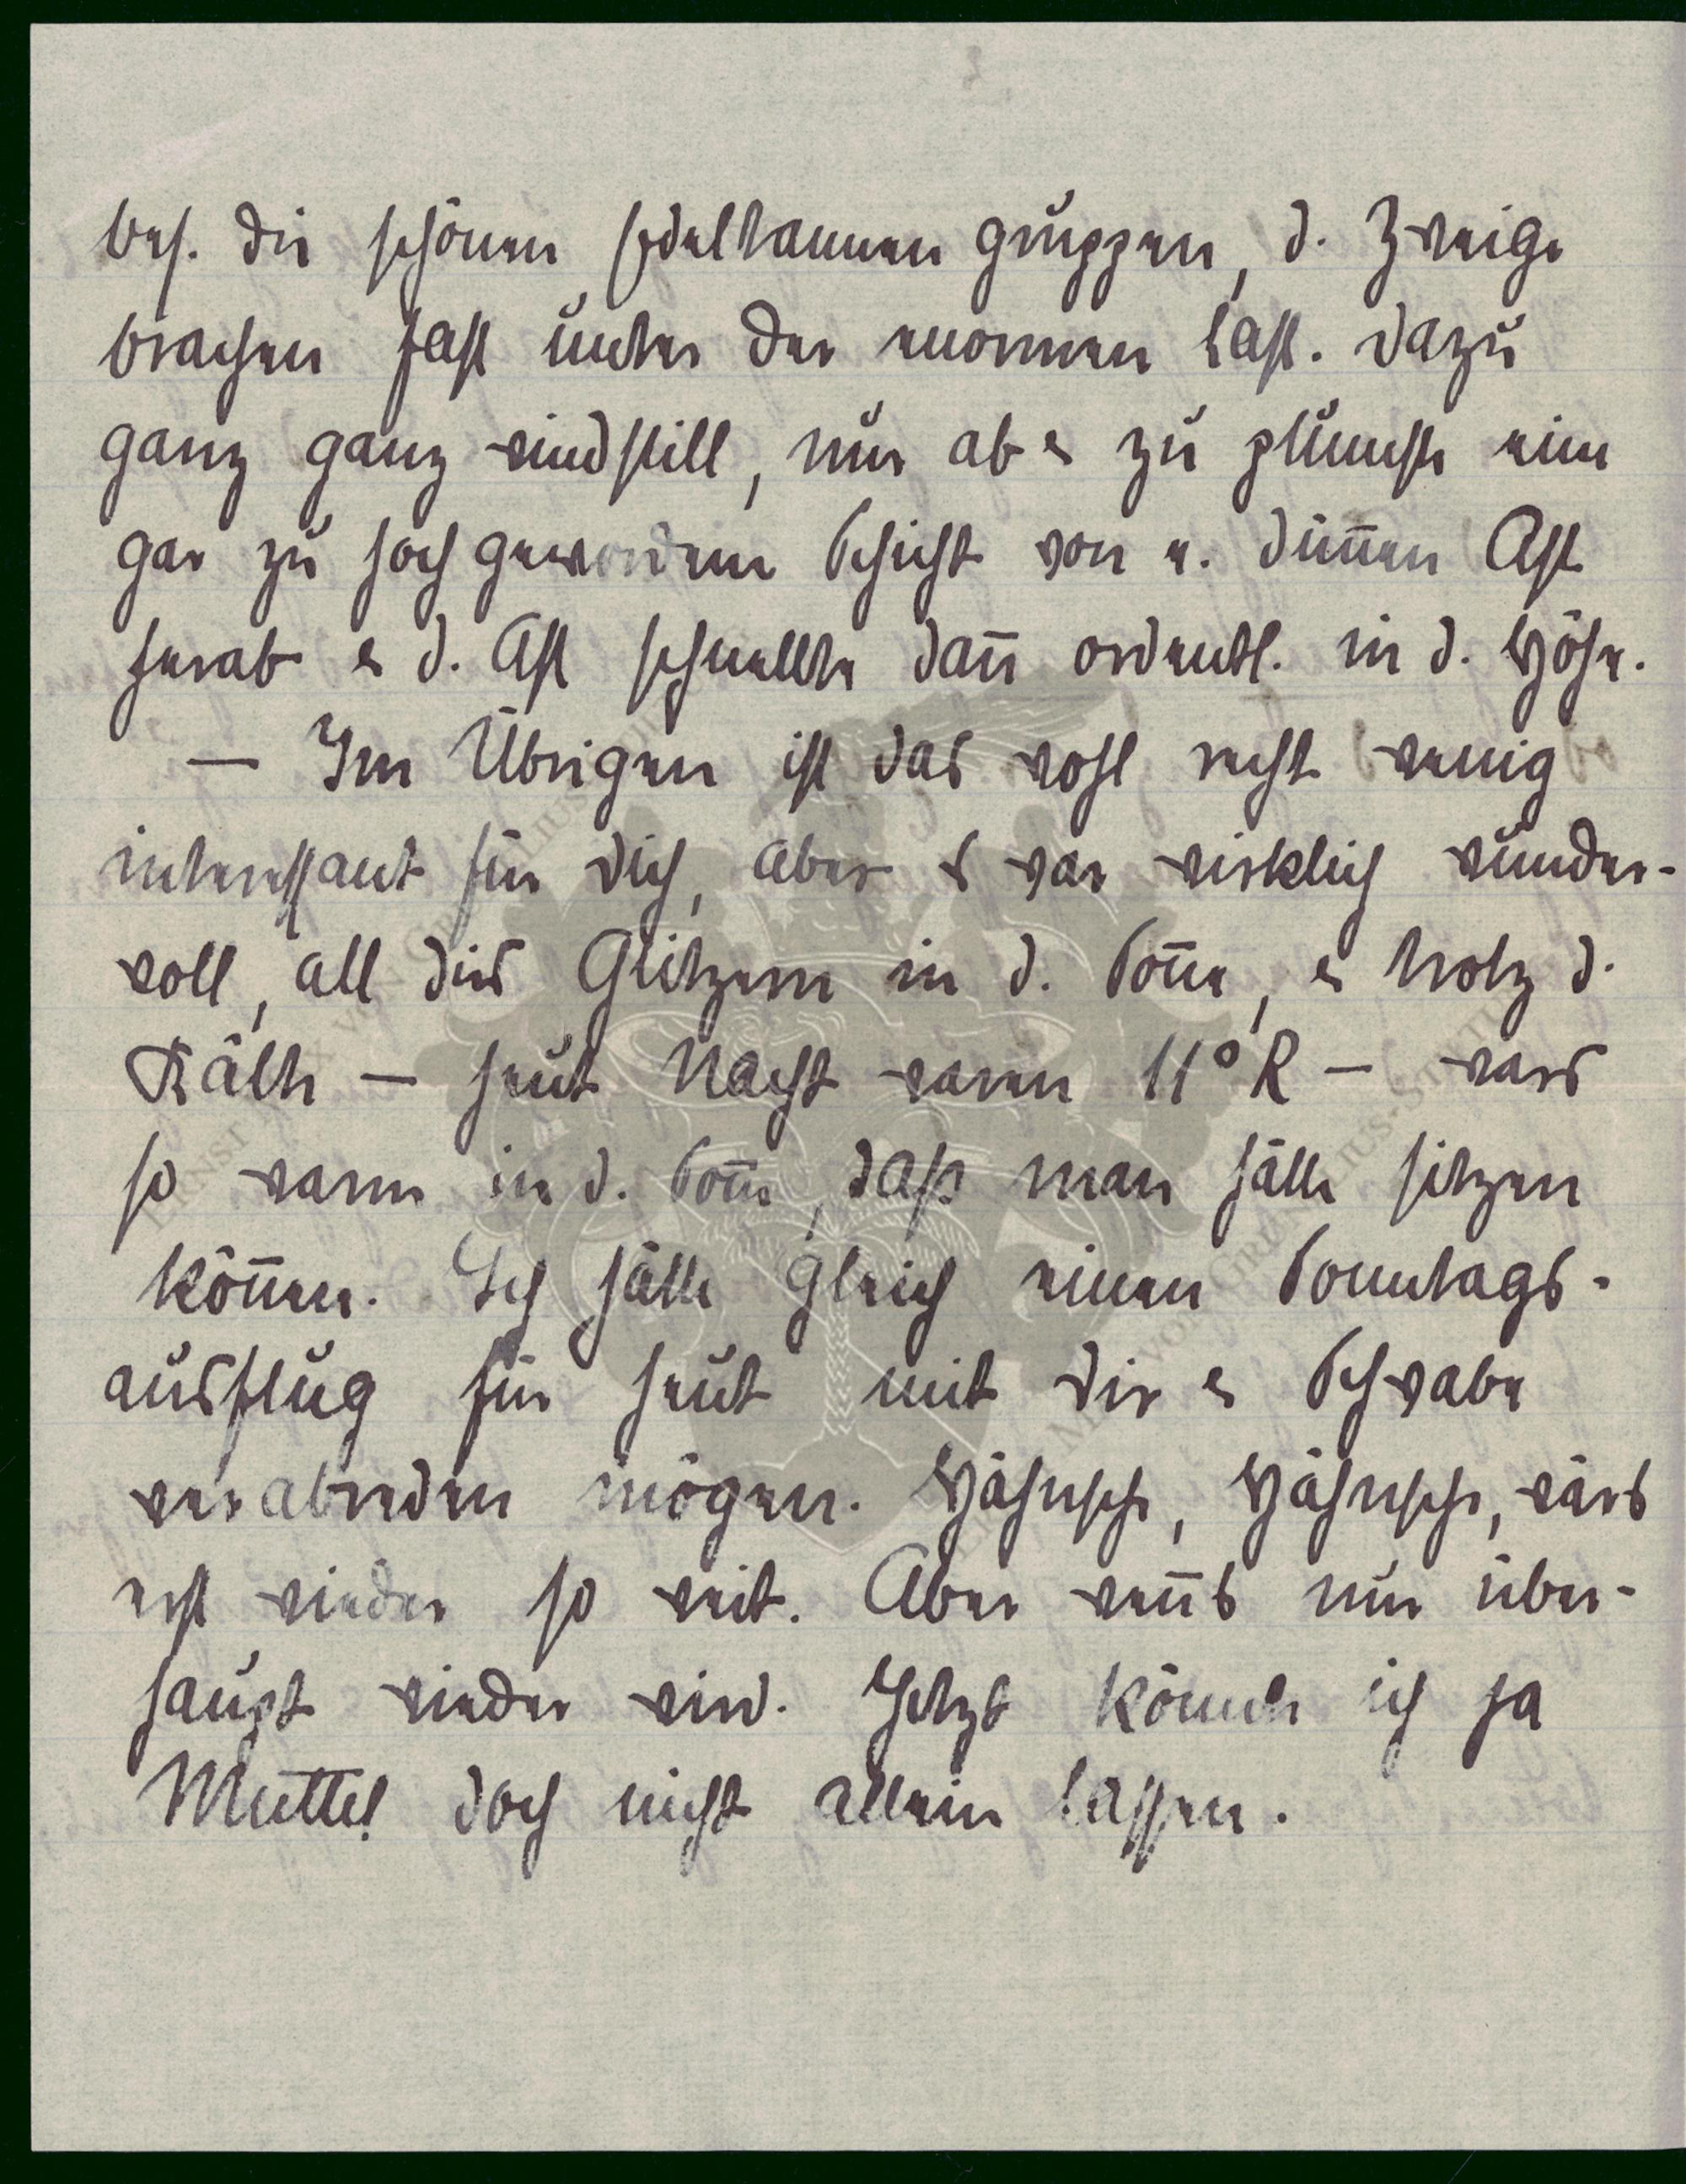 bes. die schönen Edeltannengruppen, d. Zweige
brachen fast unter der enormen Last. Dazu
ganz ganz windstill, nur ab u. zu plumste eine
gar zu hoch gewordene Schicht von e. dünnen Ast
herab u. d. Ast schnellte dann ordentl. in d. Höhe.
— Im Übrigen ist das wohl recht wenig
interessant für Dich, aber es war wirklich wunder-
voll, all dies Glitzern in d. Sonne, u. trotz d.
Kälte — heut Nacht waren 11° R — wars
so warm in d. Sonne, daß man hätte sitzen
können. Ich hätte gleich einen Sonntags-
ausflug für heut mit Dir u. Schwabe
verabreden mögen. Hähnsche, Hähnsche, wärs
erst wieder so weit. Aber wenns nur über-
haupt wieder wird. Jetzt könnte ich ja
Muttel doch nicht allein lassen.